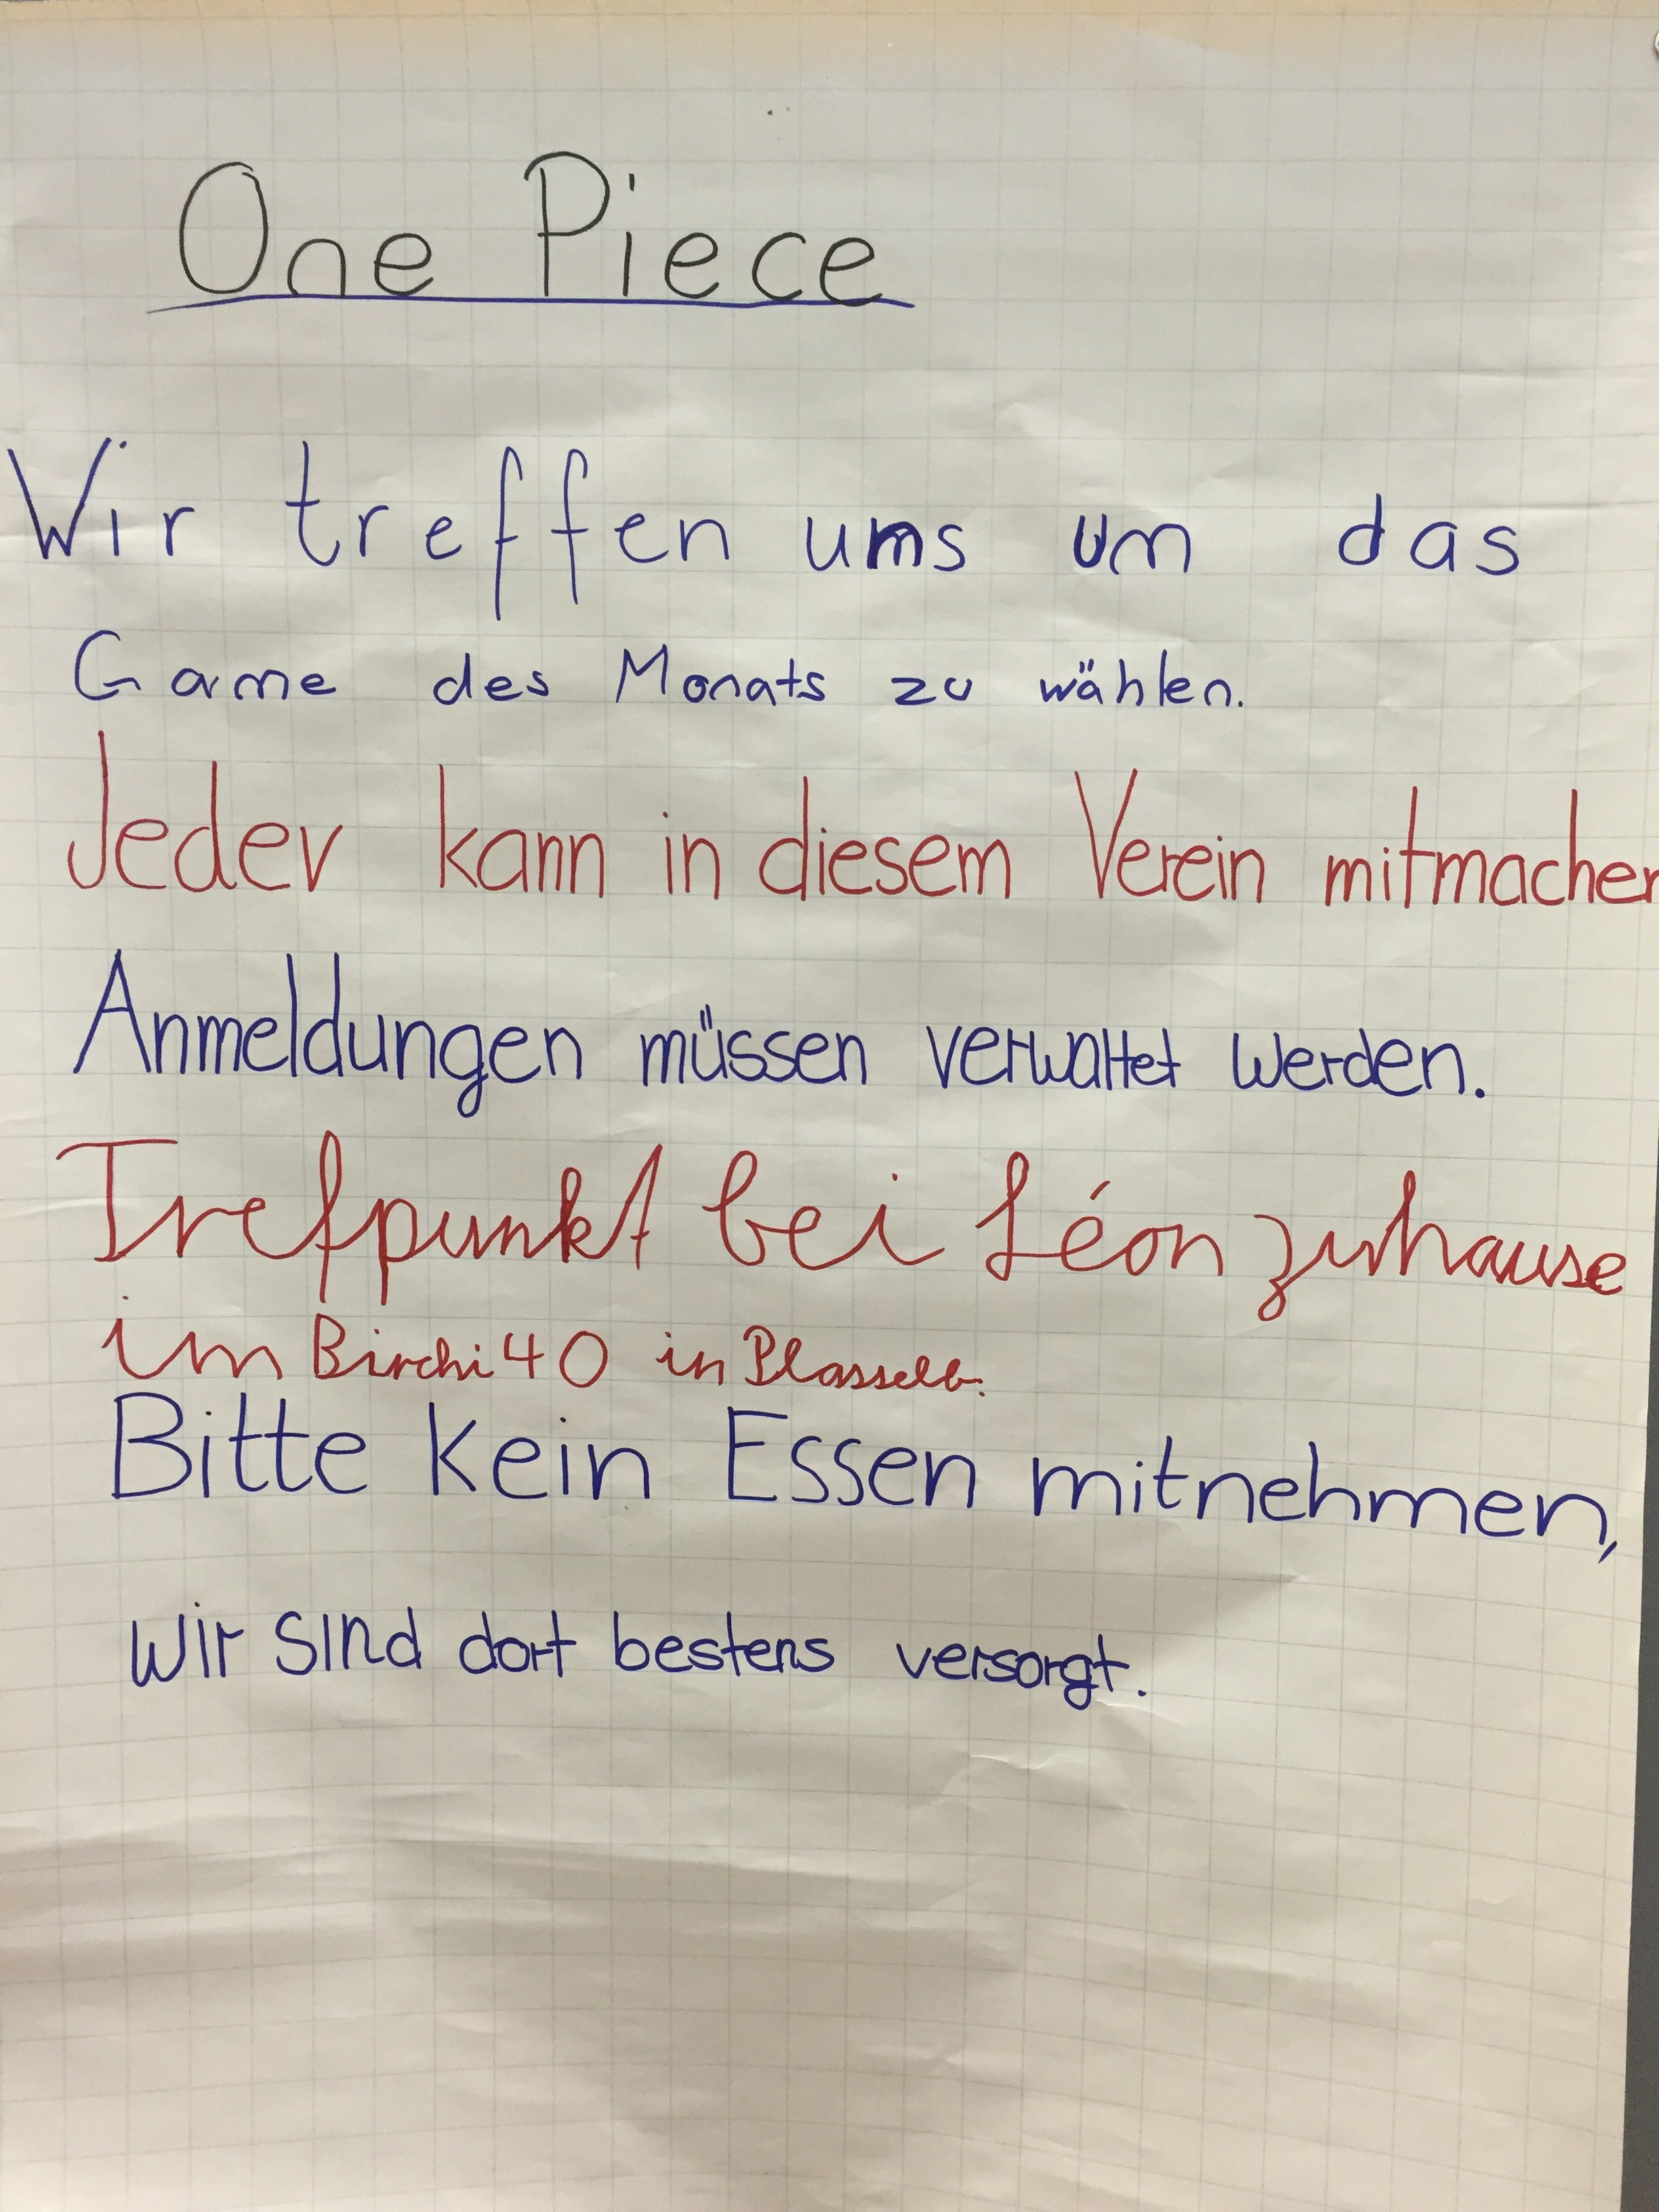 One Piece
Wir treffen uns um das
Game des Monats zu wählen.
Jeder kann in diesem Verein mitmachen
Anmeldungen müssen verwaltet werden.
Trefpunkt bei Léon zuhause
im Birchi 40 in Plasselb.
Bitte kein Essen mitnehmen,
wir sind dort bestens versorgt.